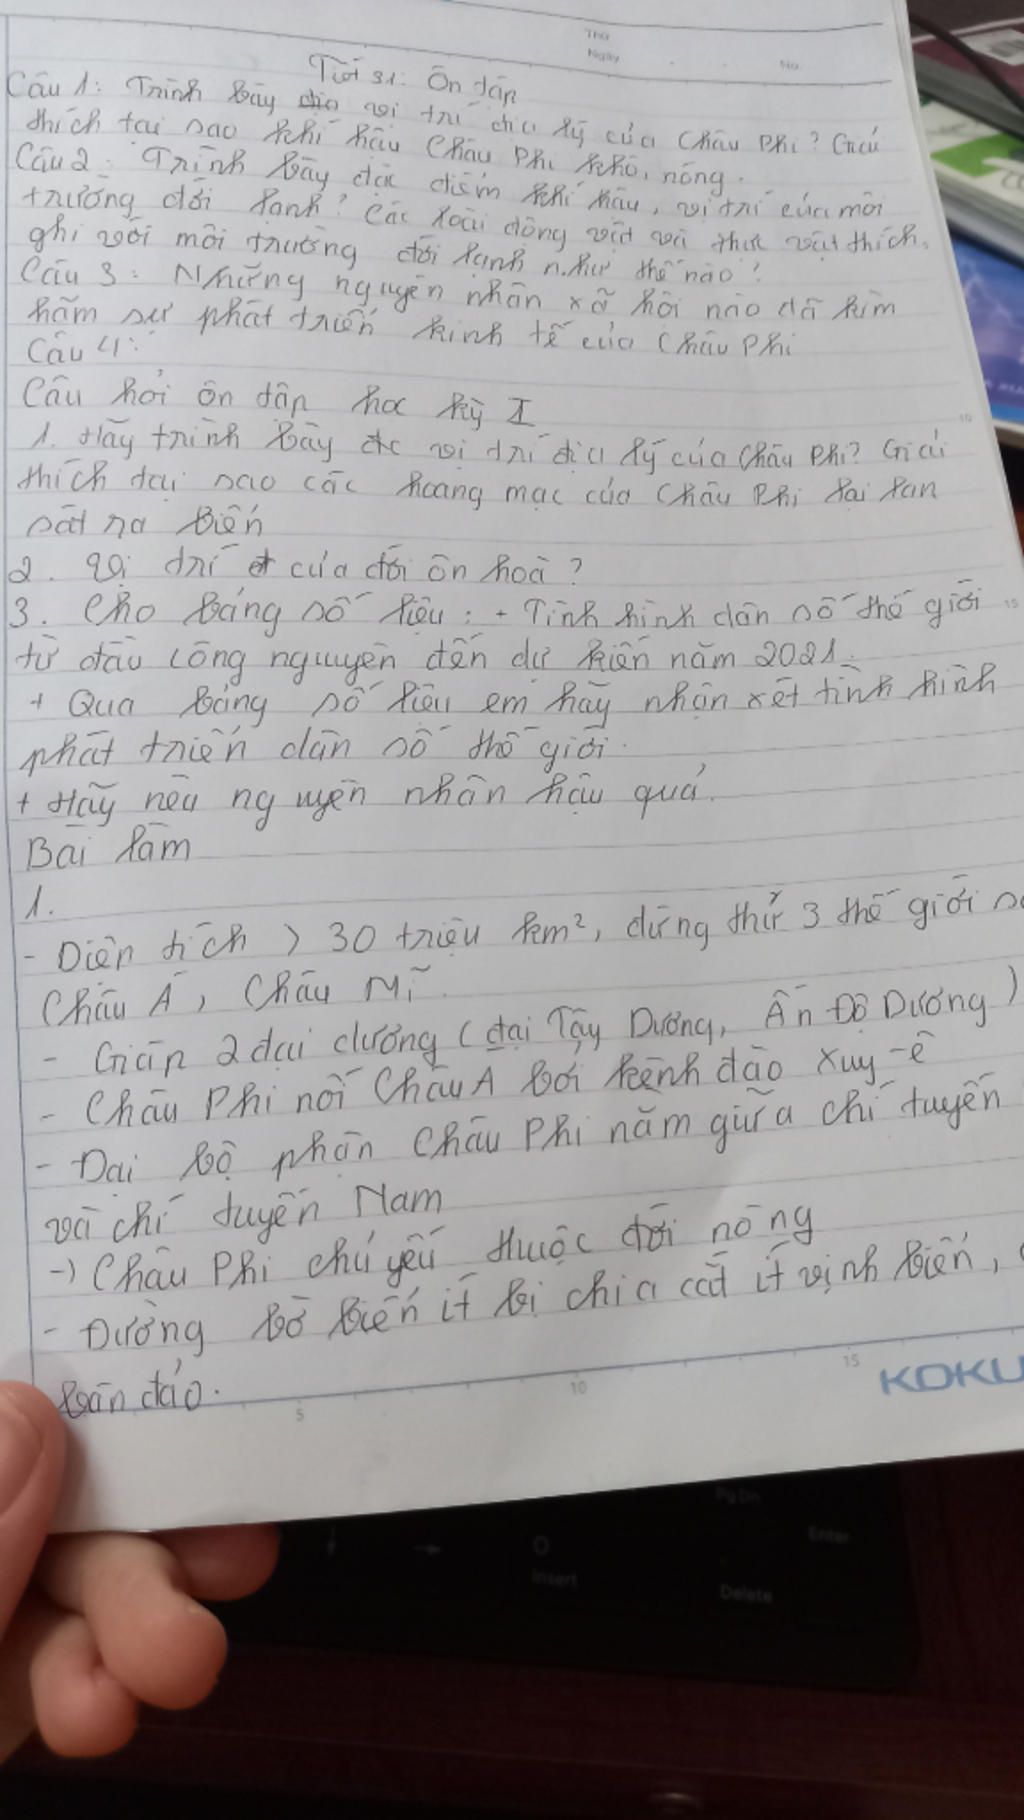 Thứ
Ngày No.
Tiết 31: Ôn tập
Câu 1: Trình bày vị trí địa lý của Châu Phi? Giải
thích tại sao khí hậu Châu Phi khô, nóng.
Câu 2: Trình bày đặc điểm khí hậu, vị trí của môi
trường đới lạnh? Các loài động vật và thực vật thích
ghi với môi trường đới lạnh như thế nào?
Câu 3: Những nguyên nhân xã hội nào đã kìm
hãm sự phát triển kinh tế của Châu Phi
Câu 4:
Câu hỏi ôn tập học kỳ I
1. Hãy trình bày vị trí địa lý của Châu Phi? Giải
thích tại sao các hoang mạc của Châu Phi lại lan
sát ra biển
2. Vị trí của đới ôn hoà?
3. Cho bảng số liệu: + Tình hình dân số thế giới
từ đầu công nguyên đến dự kiến năm 2021.
+ Qua bảng số liệu em hãy nhận xét tình hình
phát triển dân số thế giới.
+ Hãy nêu nguyên nhân hậu quả.
Bài làm
1.
- Diện tích > 30 triệu km², đứng thứ 3 thế giới
Châu Á, Châu Mĩ
- Giáp 2 đại dương (đại Tây Dương, Ấn Độ Dương)
- Châu Phi nối Châu A bởi kênh đào Xuy-ê
- Đại bộ phận Châu Phi nằm giữa chí tuyến
và chí tuyến Nam
-) Châu Phi chủ yếu thuộc đới nóng
- Đường bờ biển ít bị chia cắt ít vịnh biển,
bán đảo.
5 10 15
KOKU
Pg Dn
Enter
0
Insert
Delete